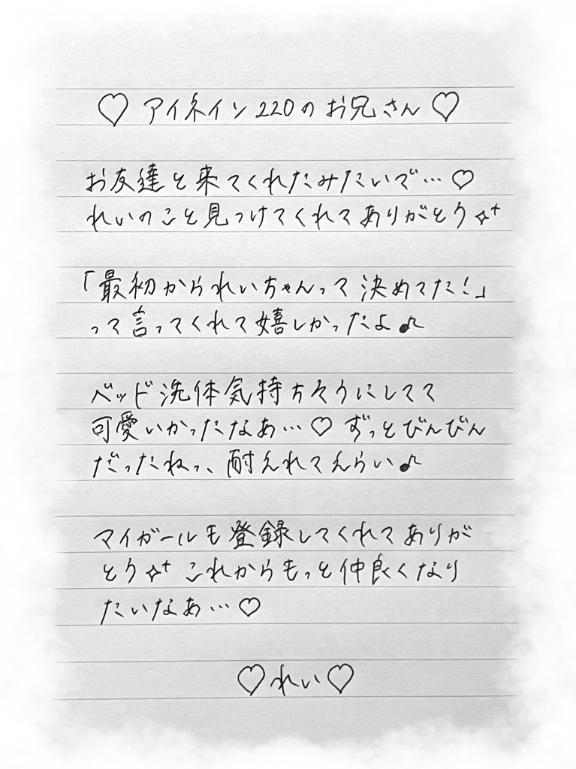 ♡ アイネイン220のお兄さん ♡
お友達と来てくれたみたいで…♡
れいのこと見つけてくれてありがとう✧⁺
「最初かられいちゃんって決めてた！」
って言ってくれて嬉しかったよ♪
ベッド洗体気持ちそうにしてて
可愛いかったなあ…♡ ずっとびんびん
だったねっ、耐えれてえらい♪
マイガールも登録してくれてありが
とう✧⁺ これからもっと仲良くなり
たいなあ…♡
♡れい♡